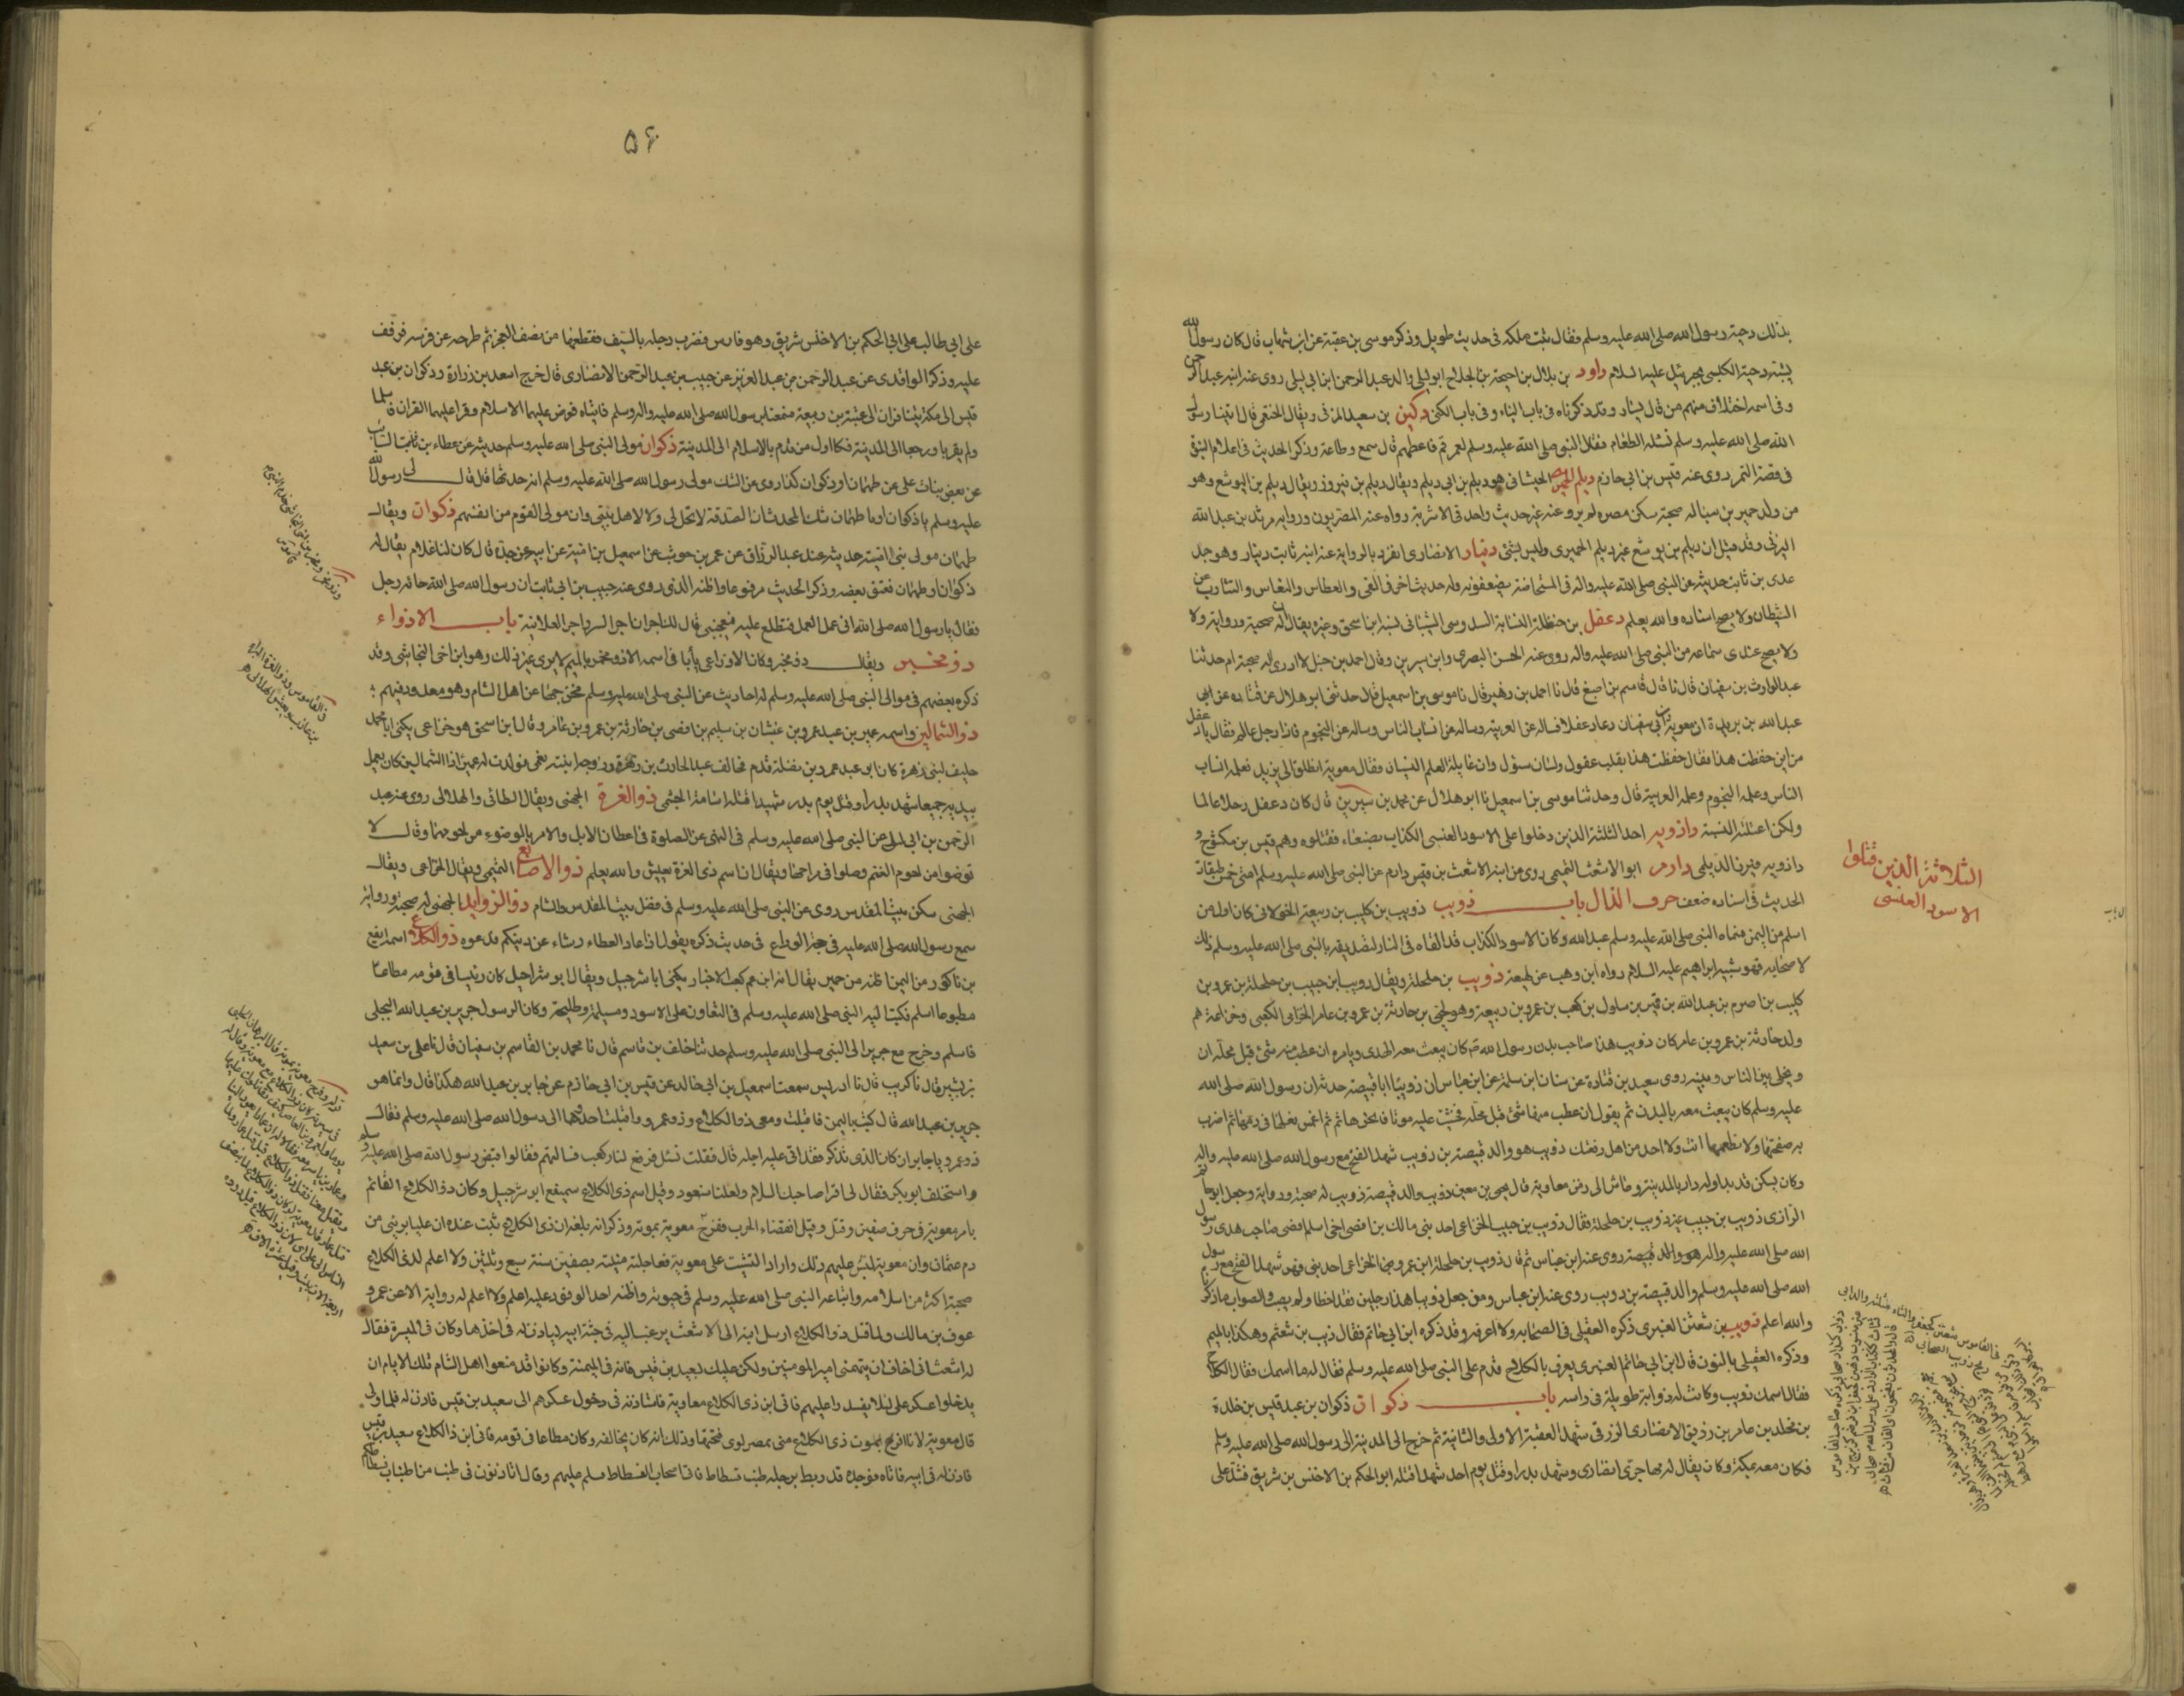 بذلك دحية رسول الله صلى الله عليه وسلم فقال ثبت ملكه فى حديث طويل وذكر موسى بن عقبة عن ابن شهاب قال كان رسول الله
يشبه دحية الكلبى بجبرئيل عليه السلام داود بن بلال بن احيحة بن الجلاح ابو ليلى والد عبد الرحمن ابن ابى ليلى روى عنه ابنه عبد الرحمن
وفى اسمه اختلاف منهم من قال يسار وقد ذكرناه فى باب الياء وفى باب الكنى دكين بن سعيد المزنى ويقال الخثعمى قال اتينا رسول
الله صلى الله عليه وسلم نسئله الطعام فقال النبى صلى الله عليه وسلم لعمر قم فاعطهم قال سمع وطاعة وذكر الحديث فى اعلام النبوة
فى قصة التمر روى عنه قيس بن ابى حازم ديلم الحميرى الجيشانى هو ديلم بن ابى ديلم ويقال ديلم بن فيروز ويقال ديلم بن اليوشع وهو
من ولد حمير بن سبا له صحبة سكن مصر ولم يرو عنه غير حديث واحد فى الاشربة رواه عنه المصريون ورواية مرثد بن عبد الله
اليزنى وقد قيل ان ديلم بن يوشع غير ديلم الحميرى وليس بشئ دينار الانصارى انفرد بالرواية عنه ابنه ثابت دينار وهو جد
عدى بن ثابت حديثه عن النبى صلى الله عليه واله فى المستحاضة يضعفونه وله حديث اخر فى القى والعطاس والنعاس والتثاوب من
الشيطان ولا يصح اسناده والله يعلم دغفل بن حنظلة النسابة السدوسى الشيبانى نسبه ابن اسحق وغيره يقال له صحبة ورواية ولا
ولا يصح عندى سماعه من النبى صلى الله عليه واله روى عنه الحسن البصرى وابن سيرين وقال احمد بن حنبل لا ادرى له صحبة ام حدثنا
عبد الوارث بن سفيان قال نا قال قاسم بن اصبغ قال نا احمد بن زهير قال نا موسى بن اسمعيل قال حدثنى ابو هلال عن قتاده عن ابى
عبد الله بن بريدة ان معوية بن ابى سفيان دعا دغفلا فساله عن العربية وساله عن انساب الناس وساله عن النجوم فاذا رجل عالم فقال يا دغفل
من اين حفظت هذا فقال حفظت هذا بقلب عقول ولسان سؤل وان غايلة العلم النسيان فقال معوية انطلق الى يزيد فعلمه انساب
الناس وعلمه النجوم وعلمه العربية قال وحدثنا موسى بن اسمعيل نا ابو هلال عن محمد بن سيرين قال كان دغفل رجلا عالما
ولكن اغتلته النسبة داذويه احد الثلثة الذين دخلوا على الاسود العنسى الكذاب بصنعاء فقتلوه وهم قيس بن مكشوح و
داذويه وفيروز الديلمى دارم ابو الاشعث التميمى روى عن ابنه الاشعث بن قيس دارم عن النبى صلى الله عليه وسلم امتى خمس طبقات
الحديث فى اسناده ضعف حرف الذال باب ذويب ذويب بن كليب بن ربيعة الخولانى كان اول من
اسلم من اليمن فسماه النبى صلى الله عليه وسلم عبد الله وكان الاسود الكذاب قد القاه فى النار لتصديقه بالنبى صلى الله عليه وسلم ذلك
لاصحابه فهو شبيه ابراهيم عليه السلام رواه ابن وهب عن لهيعة ذويب بن حلحلة ويقال ذويب ابن حبيب بن حلحلة بن عمرو بن
كليب بن اصرم بن عبد الله بن قمير بن سلول بن كعب بن عمرو بن ربيعة وهو لحى بن حارثة بن عمرو بن عامر الخزاعى الكعبى وخزاعة هم
ولد حارثة بن عمرو بن عامر كان ذويب هذا صاحب بدن رسول الله ص كان يبعث معه الهدى ويامره ان عطب منه شئ قبل محله ان
ويخلى بين الناس وبينه روى سعيد بن قتادة عن سنان بن سلمة عن ابن عباس ان ذويبا ابا قبيصة حدثه ان رسول الله صلى الله
عليه وسلم كان يبعث معه بالبدن ثم يقول ان عطب منها شئ قبل محله فخشيت عليه موتا فانحرها ثم ثم اغمس نعلها فى دمها ثم اضرب
به صفحتها ولا تطعمها انت ولا احد من اهل رفقتك ذويب هو والد قبيصة بن ذويب شهد الفتح مع رسول الله صلى الله عليه واله
وكان يسكن قديدا وله دار بالمدينة وعاش الى زمن معاوية قال يحيى بن معين ذويب والد قبيصة ذويب له صحبة ورواية وجعل ابو حاتم
الرازى ذويب بن حبيب غير ذويب بن حلحلة فقال ذويب بن حبيب الخزاعى احد بنى مالك بن افصى اخى اسلم افصى صاحب هدى رسول
الله صلى الله عليه واله هو والد قبيصة روى عنه ابن عباس ثم قال ذويب بن حلحلة ابن عمرو الخزاعى احد بنى قمير شهد الفتح مع رسول
الله صلى الله عليه وسلم والد قبيصة بن ذويب روى عنه ابن عباس ومن جعل ذويبا هذا رجلين فقد اخطا ولم يصب والصواب ما ذكرنا
والله اعلم ذويب بن شعثن العنبرى ذكره العقيلى فى الصحابه ولا اعرفه وقد ذكره ابن ابى حاتم فقال ذيب بن شعثم وهكذا بالميم
وذكره العقيلى بالنون قال ابن ابى حاتم العنبرى يعرف بالكلاح قدم على النبى صلى الله عليه وسلم فقال له ما اسمك فقال الكلاح
فقال اسمك ذويب وكانت له ذوابة طويلة فى راسه باب ذكوان ذكوان بن عبد قيس بن خلدة
بن مخلد بن عامر بن زريق الانصارى الزرقى شهد العقبة الاولى والثانية ثم خرج الى المدينة الى رسول الله صلى الله عليه وسلم
فكان معه بمكة وكان يقال له مهاجرى انصارى وشهد بدرا وقتل يوم احد شهدا قتله ابو الحكم بن الاخنس بن شريق فشد على
الثلاثة الذين قتلوا
الاسود العنسى
۵۶
على ابى طالب على ابى الحكم بن الاخنس شريق وهو فارس فضرب رجله بالسيف فقطعها من نصف الفخذ ثم طرحه عن فرسه فوقف
عليه وذكر الواقدى عن عبد الرحمن بن عبد العزيز عن حبيب بن عبد الرحمن الانصارى قال خرج اسعد بن زرارة وذكوان بن عبد
قيس الى مكة يتنافران الى عتبة بن ربيعة فسمعا برسول الله صلى الله عليه واله وسلم فاتياه فعرض عليهما الاسلام وقرا عليهما القران فاسلما
ولم يقربا ورجعا الى المدينة فكانا اول من قدم بالاسلام الى المدينة ذكوان مولى النبى صلى الله عليه وسلم حديثه عن عطاء بن السائب
عن بعض بنات على عن طهمان او ذكوان كذا روى عن الشك مولى رسول الله صلى الله عليه وسلم انه حدثها قال قال لى رسول الله
عليه وسلم يا ذكوان او يا طهمان شك المحدث ان الصدقة لا تحل لى ولا لاهل بيتى وان مولى القوم من انفسهم ذكوان ويقال
طهمان مولى بنى امية حديثه عند عبد الرزاق عن عمر بن حوشب عن اسمعيل بن امية عن ابيه عن جده قال كان لنا غلام يقال له
ذكوان او طهمان فعتق بعضه وذكر الحديث مرفوعا واظنه الذى روى عنه حبيب بن ابى ثابت ان رسول الله صلى الله جائه رجل
فقال يا رسول الله صلى الله انى عمل العمل فتطلع عليه فيعجبنى قال لك اجران اجر السر واجر العلانية باب الاذواء
ذو مخبر ويقال ذو مخمر وكان الاوزاعى يأبا فى اسمه الا ذو مخمر بالميم لا يرى غير ذلك وهو ابن اخى النجاشى وقد
ذكره بعضهم فى موالى النبى صلى الله عليه وسلم له احاديث عن النبى صلى الله عليه وسلم مخرجها عن اهل الشام وهو معدود فيهم
ذو الشمالين واسمه عمير بن عبد عمرو بن غبشان بن سليم بن افصى بن حارثة بن عمرو بن عامر وقال ابن اسحق هو خزاعى يكنى ابا محمد
حليف لبنى زهرة كان ابو عبد عمرو بن نضلة قدم فحالف عبد الحارث بن زهرة وزوجه ابنته نعمى فولدت له عميرا ذا الشمالين كان يعمل
بيديه جميعا شهد بدرا وقتل يوم بدر شهيدا قتله اسامة الجشمى ذو الغرة الجهنى ويقال الطائى والهلالى روى عنه عبد
الرحمن بن ابى ليلى عن النبى صلى الله عليه وسلم فى النهى عن الصلوة فى اعطان الابل والامر بالوضوء من لحومها وقال لا
توضوا من لحوم الغنم وصلوا فى مراحها ويقال ان اسم ذى الغرة يعيش والله يعلم ذو الاصابع التميمى ويقال الخزاعى ويقال
الجهنى سكن بيت المقدس روى عن النبى صلى الله عليه وسلم فى فضل بيت المقدس والشام ذو الزوايد الجهنى له صحبة ورواية
سمع رسول الله صلى الله عليه فى حجة الوداع فى حديث ذكره يقول اذا عاد العطاء رشاء عن دينكم فدعوه ذو الكلاع اسمه ايفع
بن ناكور من اليمن اظنه من حمير يقال انه ابن عم كعب الاحبار يكنى ابا شرحبيل ويقال ابو شراحيل كان رئيسا فى قومه مطاعا
مطبوعا اسلم فكتب اليه النبى صلى الله عليه وسلم فى التعاون على الاسود ومسيلمة وطليحة وكان الرسول جرير بن عبد الله البجلى
فاسلم وخرج مع جرير الى النبى صلى الله عليه وسلم حدثنا خلف بن قاسم قال نا محمد بن القاسم بن سفيان قال نا على بن سعيد
بن بشير قال نا كريب قال نا ادريس سمعت اسمعيل بن ابى خالد عن قيس بن ابى حازم عن جابر بن عبد الله هكذا قال وانما هو
جرير بن عبد الله قال كنت باليمن فاقبلت ومعى ذو الكلاع وذو عمرو واقبلت احدثهما الى رسول الله صلى الله عليه وسلم فقال
ذو عمرو يا جابر ان كان الذى تذكر فقد اتى عليه اجله قال فقلت نسئل فرفع لنا ركب فسالتهم فقالوا قبض رسول الله صلى الله عليه وسلم
واستخلف ابو بكر فقال لى اقرا صاحبك السلام ولعلنا سنعود وقيل اسم ذى الكلاع سميفع ابو شرحبيل وكان ذو الكلاع القائم
بامر معوية فى حرب صفين وقتل وقيل انقضاء الحرب ففرح معوية بموته وذكر انه بلغه ان ذى الكلاع ثبت عنده ان عليا برئ من
دم عثمان وان معوية لبس عليهم ذلك واراد التشتيت على معوية فعاجلته منيته بصفين سنة سبع وثلثين ولا اعلم لذى الكلاع
صحبة اكثر من اسلامه واتباعه النبى صلى الله عليه وسلم فى حيوته واظنه احد الوفود عليه اعلم ولا اعلم له رواية الا عن عمرو
عوف بن مالك ولما قتل ذو الكلاع ارسل ابنه الى الاشعث يرغب اليه فى جثة ابيه لياذن له فى اخذها وكان فى الميسرة فقال
له اشعث انى اخاف ان يتهمنى امير المومنين ولكن عليك بسعيد بن قيس فانه فى الميمنة وكانوا قد منعوا اهل الشام تلك الايام ان
يدخلوا عسكر على لئلا يفسدوا عليهم فاتى ابن ذى الكلاع معاوية فاستاذنه فى دخول عسكرهم الى سعيد بن قيس فاذن له فلما ولى
قال معوية لانا افرح بموت ذى الكلاع منى بمصر لوى فتحتها وذلك انه كان يخالفه وكان مطاعا فى قومه فاتى ابن ذا الكلاع سعيد بن قيس
فاذن له فى ابيه فاتاه فوجده قد ربط برجله طنب فسطاط فاتى اصحاب الفسطاط فسلم عليهم وقال اتاذنون فى طنب من اطناب فسطاطكم